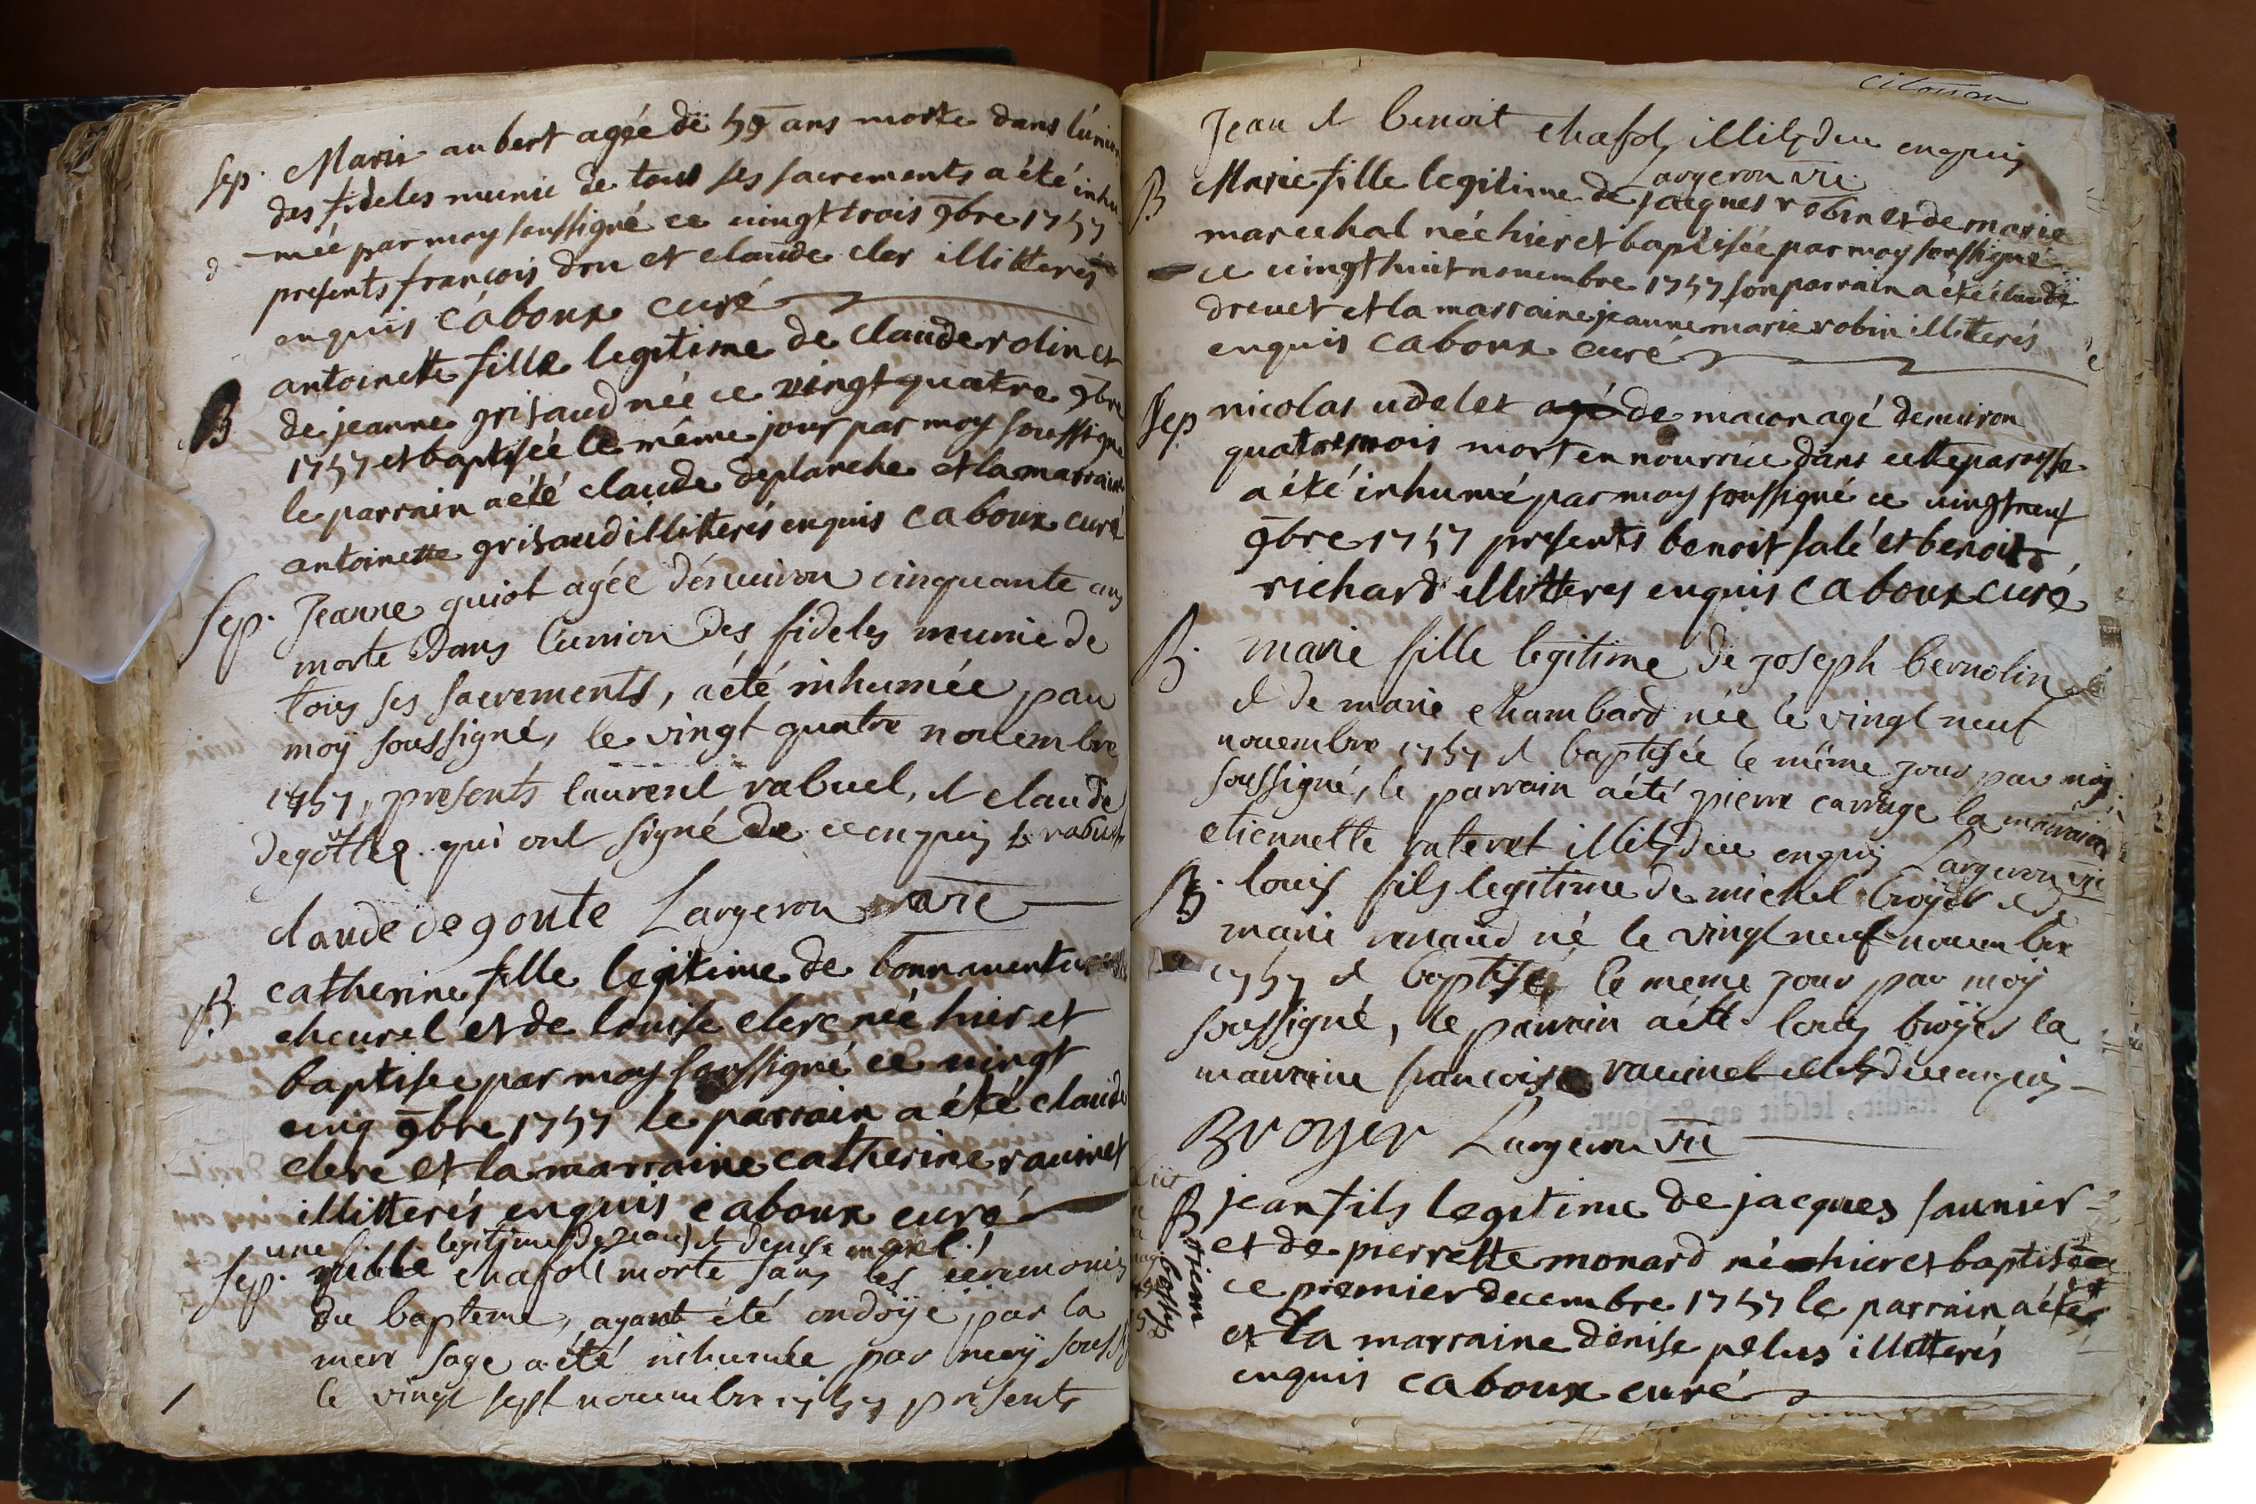 Sep. Marie aubert agée de 59 ans morte dans l'union
des fideles munie de tous ses sacrements a été inhu
-mée par moy soussigné ce uingt trois 9bre 1757
presents françois dru et claude cler illitterés
enquis Caboux curé
antoinette fille legitime de claude rolin et
B de jeanne grisaud née ce vingt quatre 9bre
1757 et baptisée le même jour par moy soussigné
le parrain a été claude deplanche et la marraine
antoinette grisaud illitterés enquis Caboux curé
Sep. Jeanne guiot agée d'enuiron cinquante ans
morte dans l'union des fideles munie de
tous ses sacrements, a été inhumée par
moÿ soussigné, le vingt quatre nouembre
1757, presents laurent rabuel, et claude
degotte qui ont signé de ce enquis
claude degoute Largeron vre
B. catherine fille legitime de bonnauenture
cheurel et de louise clerc née hier et
baptisée par moy soussigné ce uingt
cinq 9bre 1757 le parrain a été claude
clerc et la marraine catherine rauinet
illitterés enquis caboux curé
une legitime de Jean et denise
Sep. fille chafoT morte sans les ceremonies
du bapteme, ayant été ondoÿé par la
mere sage a été inhumée par moÿ souss
le vingt sept nouembre 1757 presents
Jean et benoit chafoT illit de ce enquis
Largeron vre
B Marie fille legitime de jacques robin et de marie
marechal née hier et baptisée par moy soussigné
ce uingt huit nouembre 1757 son parrain a été claude
dreuet et la marraine jeanne marie robin illiterés
enquis Caboux curé
Sep nicolas udelet agé de macon agé denuiron
quatre mois mort en nourrice dans cette paroisse
a été inhumé par moy soussigné ce uingt neuf
9bre 1757 presents benoit salé et benoit
richard illitteres enquis Caboux curé
B. marie fille legitime de joseph bernolin
et de marie chambard née le vingt neuf
nouembre 1757 et baptisée le même jour par moÿ
soussigné, le parrain a été pierre carruge la marraine
etiennette illit de ce enquis Largeron vre
B. louis fils legitime de michel broÿer et de
marie renaud né le vingt neuf nouembre
1757 et baptisé le meme jour par moÿ
soussigné, le parrain a été louis broÿer la
marraine françoise rauinet illit de ce enquis
Broyer Largeron vre
B jean fils legitime de jacques saunier
et de pierrette monard né hier et baptisé
ce premier decembre 1757 le parrain a été
et la marraine denise pelus illitterés
enquis caboux curé